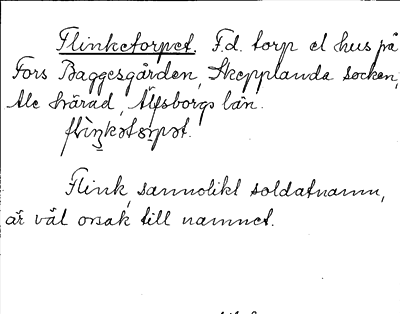 Flinketorpet. F.d. torp el hus på
Fors Baggesgården, Skepplanda socken,
Ale härad, Älfsborgs län.
fliŋkətɷrpət.
Flink, sannolikt soldatnamn,
är väl orsak till namnet.